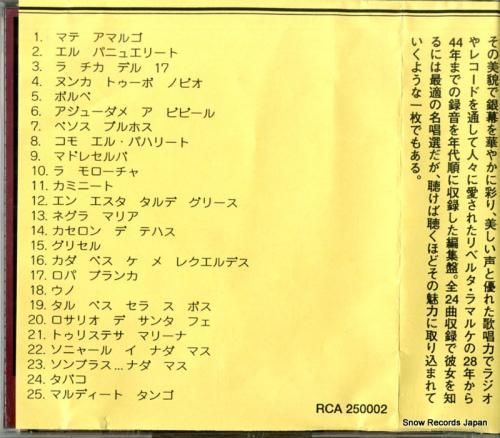 1. マテ アマルゴ
2. エル パニュエリート
3. ラ チカ デル 17
4. ヌンカ トゥーボ ノビオ
5. ボルベ
6. アジューダメ ア ビビール
7. ベソス ブルホス
8. コモ エル・パハリート
9. マドレセルバ
10. ラ モローチャ
11. カミニート
12. エン エスタ タルデ グリース
13. ネグラ マリア
14. カセロン デ テハス
15. グリセル
16. カダ ベス ケ メ レクエルデス
17. ロパ ブランカ
18. ウノ
19. タル ベス セラ ス ボス
20. ロサリオ デ サンタ フェ
21. トゥリステサ マリーナ
22. ソニャール イ ナダ マス
23. ソンブラス...ナダ マス
24. タバコ
25. マルディート タンゴ
その美貌で銀幕を華やかに彩り、美しい声と優れた歌唱力でラジオ
やレコードを通して人々に愛されたリベルタ・ラマルケの28年から
44年までの録音を年代順に収録した編集盤。全24曲収録で彼女を知
るには最適の名唱選だが、聴けば聴くほどその魅力に取り込まれて
いくような一枚でもある。
RCA 250002
Snow Records Japan
(C)www.snowrecords.jp